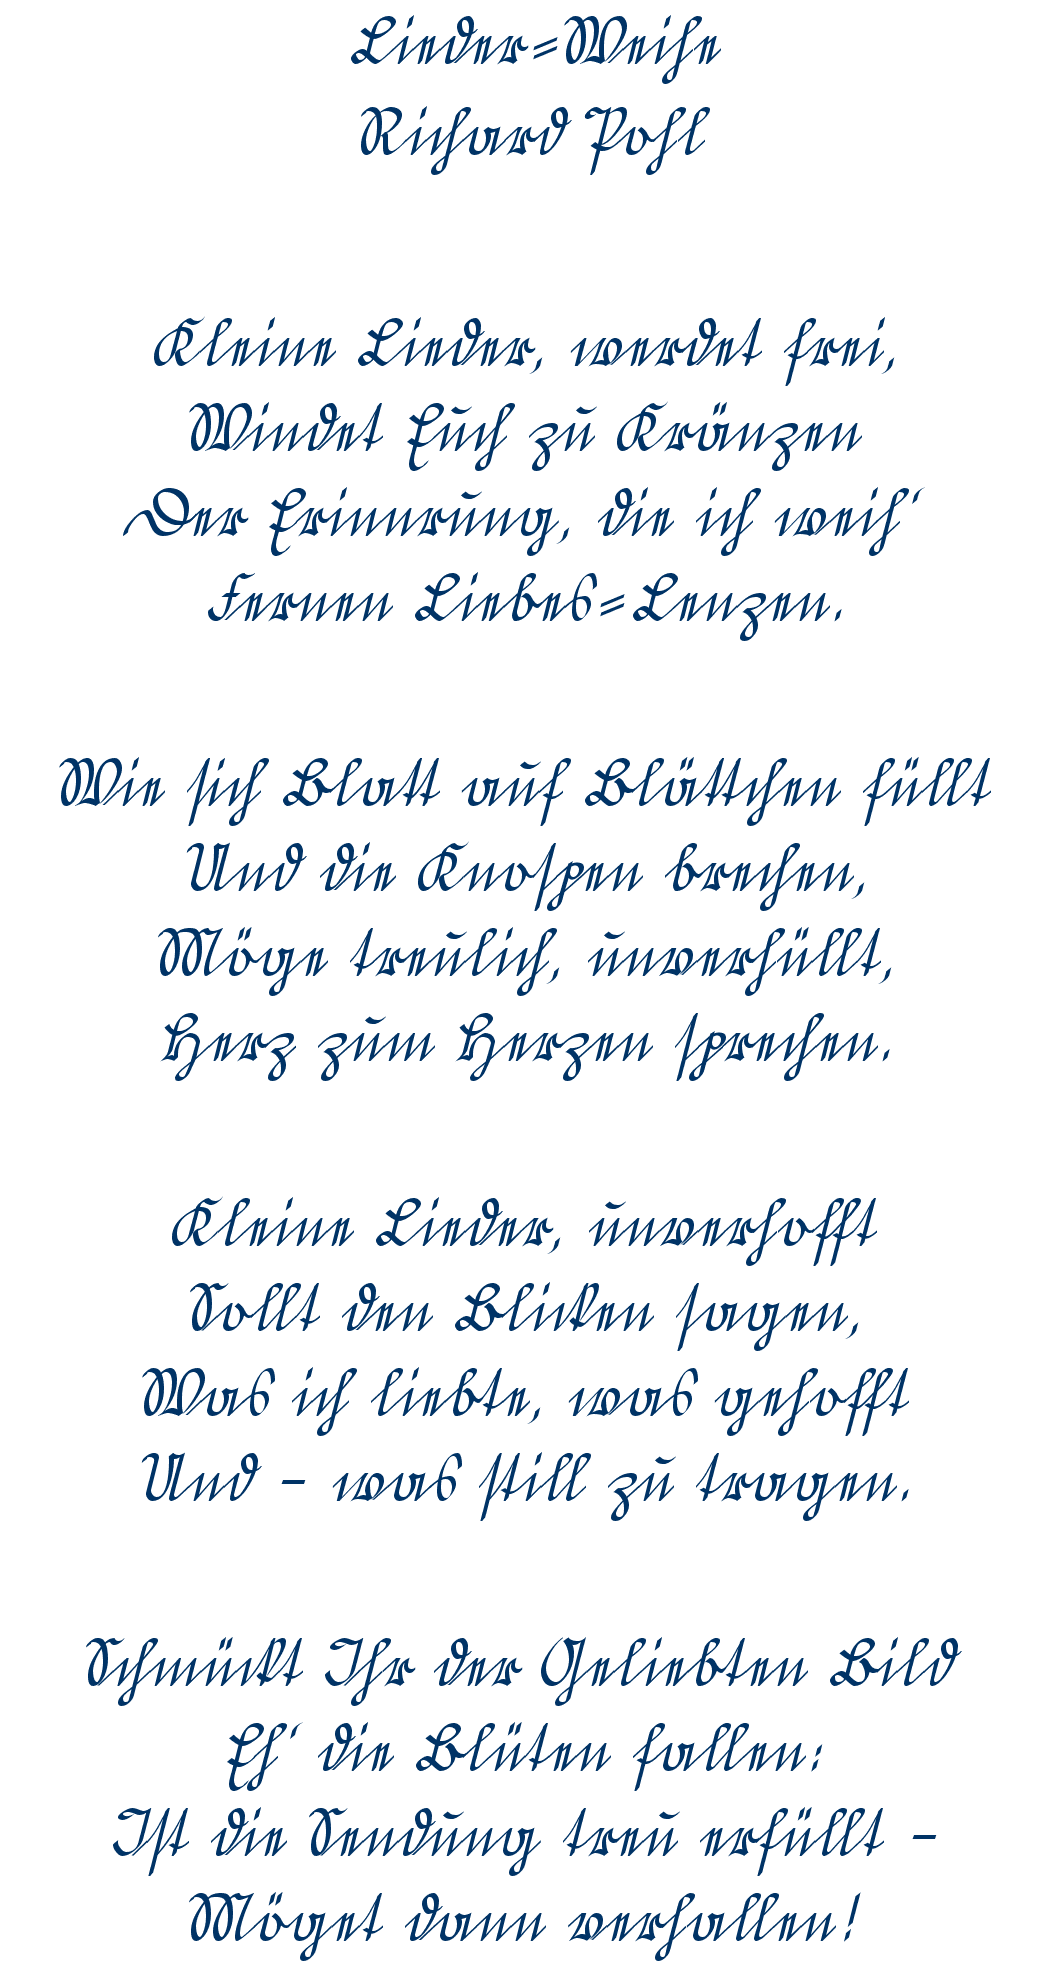 Lieder=Weihe
Richard Pohl
Kleine Lieder, werdet frei,
Windet Euch zu Kränzen
Der Erinnrung, die ich weih'
Fernen Liebes=Lenzen.
Wie sich Blatt auf Blättchen füllt
Und die Knospen brechen,
Möge treulich, unverhüllt,
Herz zum Herzen sprechen.
Kleine Lieder, unverhofft
Sollt den Blicken sagen,
Was ich liebte, was gehofft
Und – was still zu tragen.
Schmückt Ihr der Geliebten Bild
Eh' die Blüten fallen:
Ist die Sendung treu erfüllt –
Möget dann verhallen!